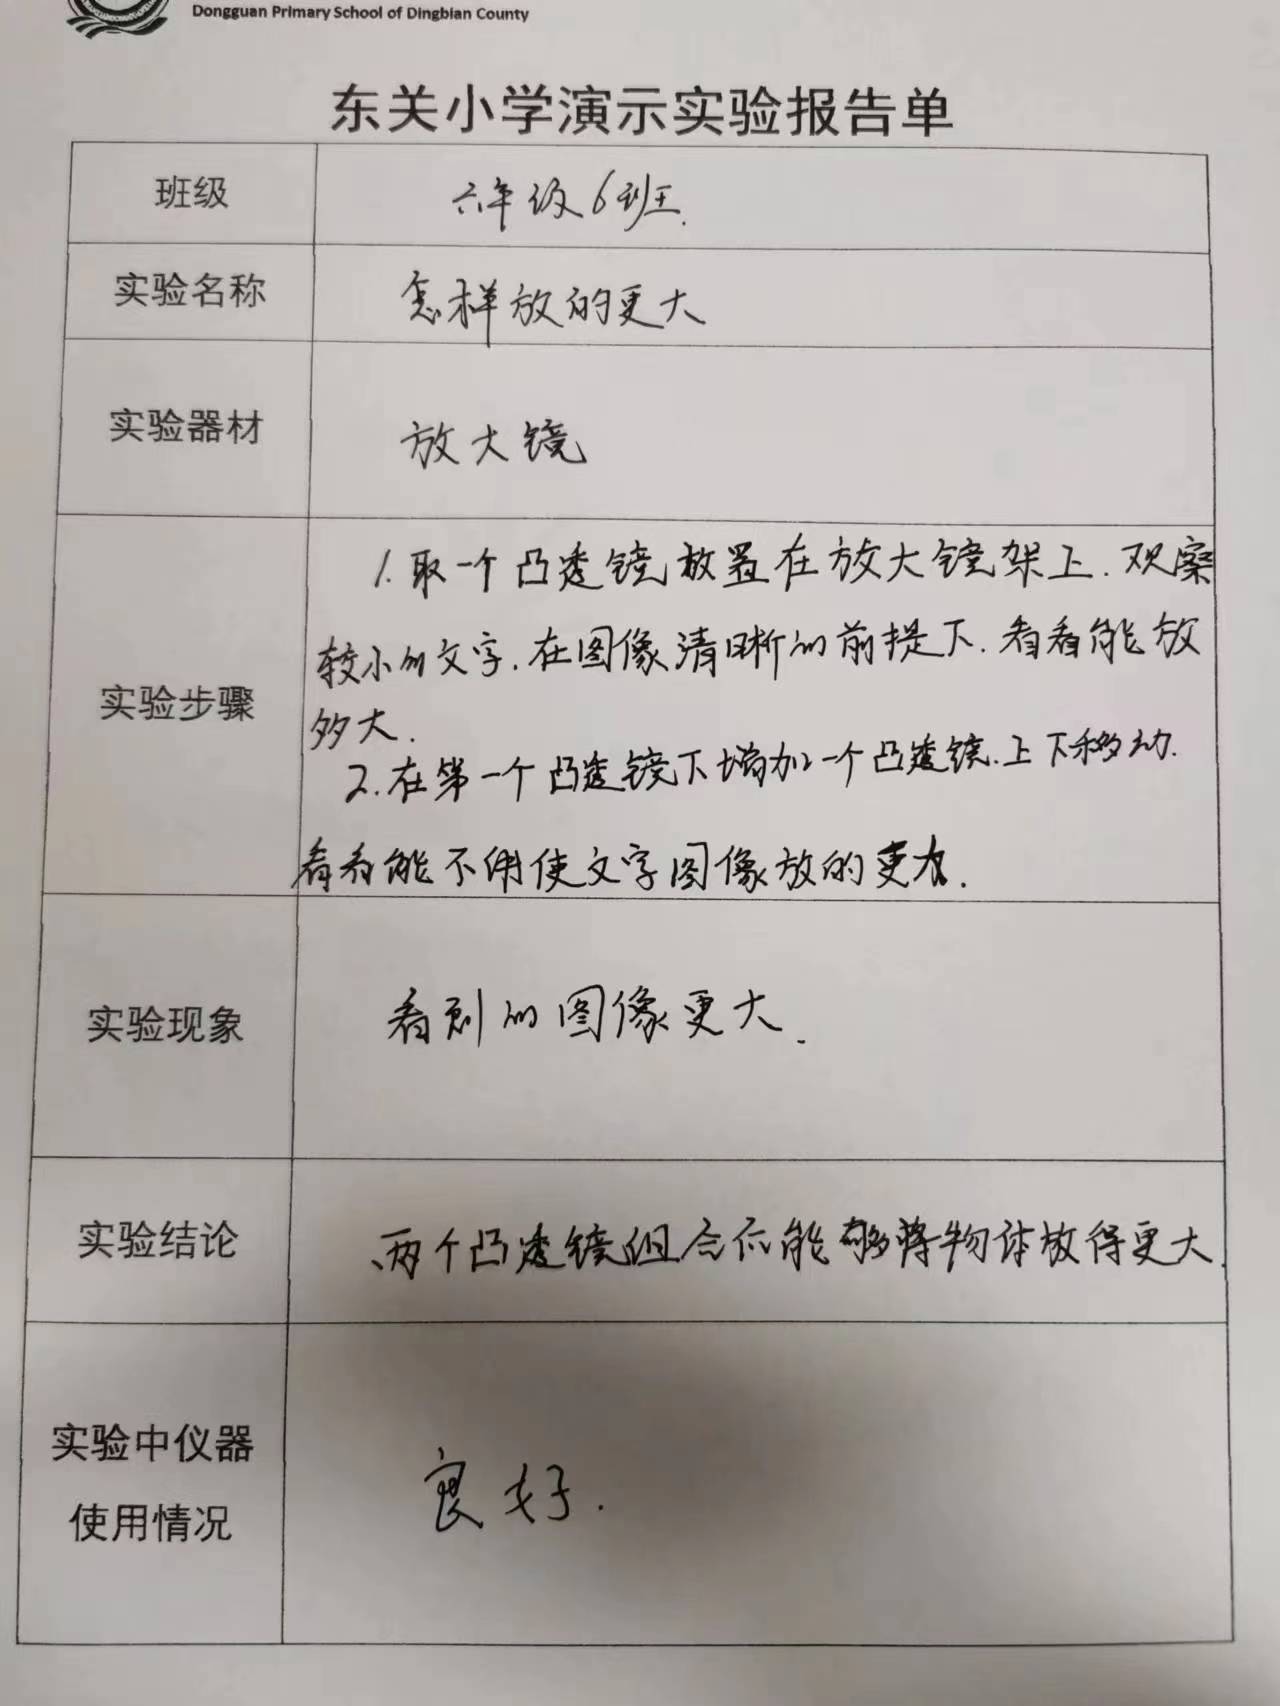 Dongguan Primary School of Dingbian County
东关小学演示实验报告单
班级 六年级6班.
实验名称 怎样放的更大
实验器材 放大镜
1.取一个凸透镜放置在放大镜架上.观察
较小的文字.在图像清晰的前提下.看看能放
实验步骤
多大.
2.在第一个凸透镜下增加一个凸透镜.上下移动.
看看能不能使文字图像放的更大.
实验现象 看到的图像更大.
实验结论 两个凸透镜组合后能够将物体放得更大.
实验中仪器
使用情况
良好.